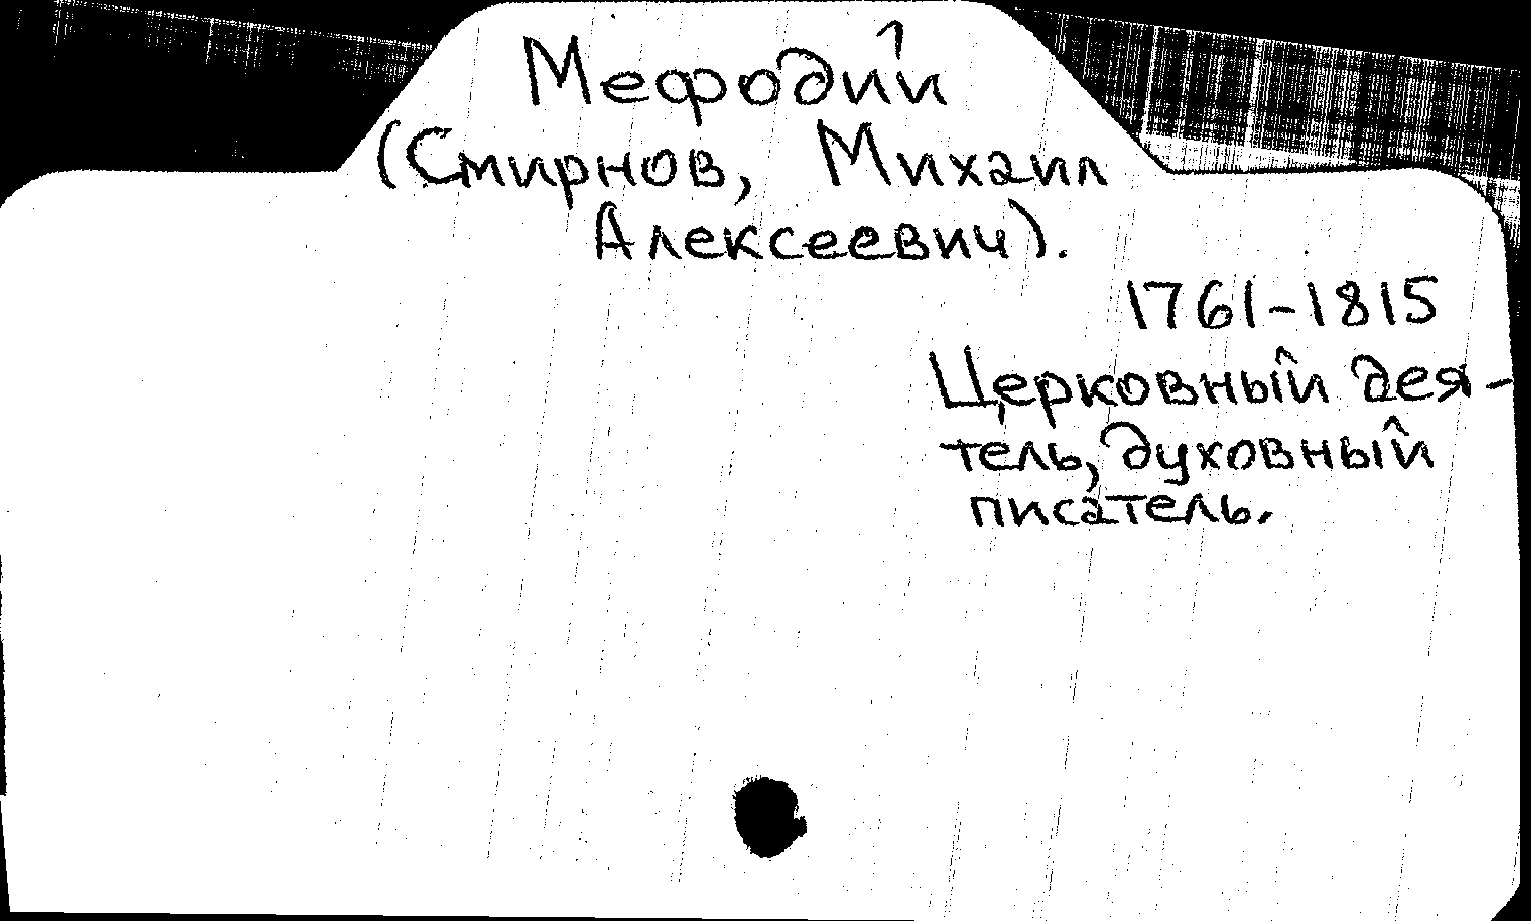 Мефодий
(Смирнов, Михаил
Алексеевич).
1761-1815
Церковный дея-
тель, духовный
писатель.